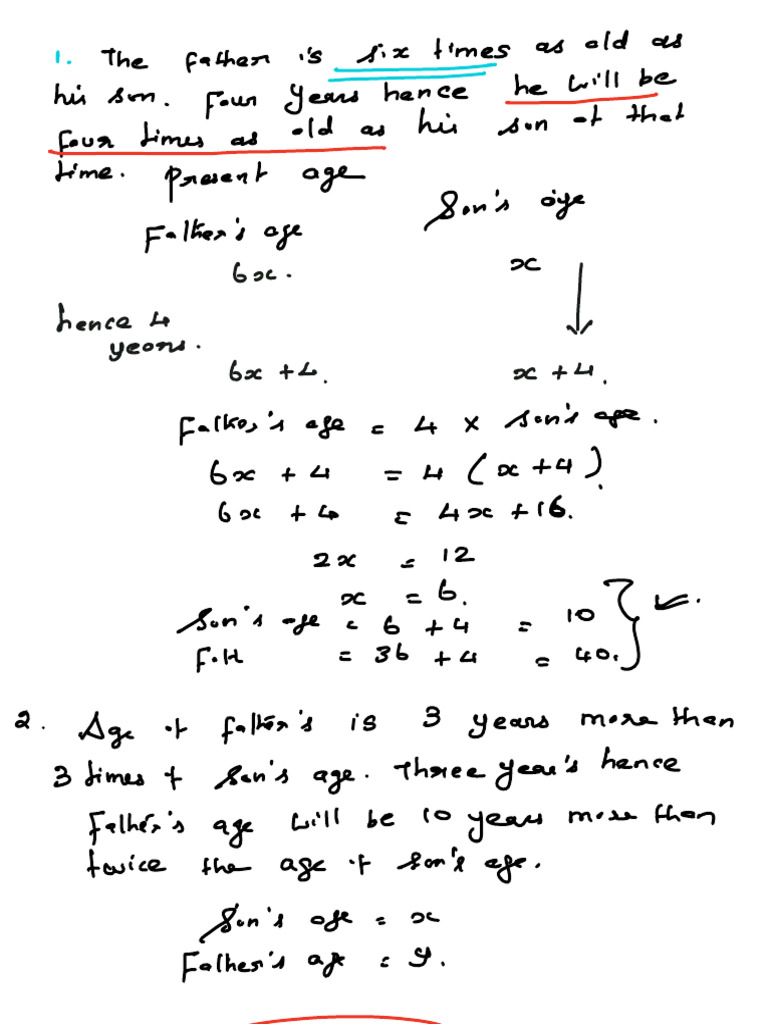 1. The father is six times as old as
his son. Four years hence he will be
four times as old as his son at that
time. Present age
Father's age Son's age
6x. x
hence 4
years.
6x + 4. x + 4.
Father's age = 4 × son's age.
6x + 4 = 4 (x + 4).
6x + 4 = 4x + 16.
2x = 12
x = 6.
Son's age = 6 + 4 = 10
= 36 + 4 = 40.
2. Age of father's is 3 years more than
3 times of son's age. Three year's hence
Father's age will be 10 years more than
twice the age of son's age.
Son's age = x
Father's age = y.